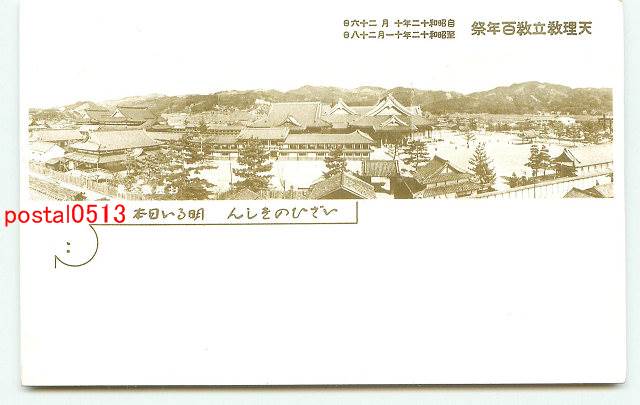 天理敎立敎百年祭
自昭和十二年十月二十六日
至昭和十二年十一月二十八日
postal0513
いざひのきしん 明るい日本